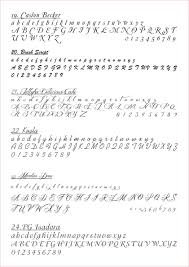 19. Caslon Becker
abcdefghijklmnopqrstuvwxyz
ABCDEFGHIJKLMNOPQRSTUVWXYZ
0123456789
20. Brush Script
abcdefghijklmnopqrstuvwxyz
ABCDEFGHIJKLMNOPQRSTUVWXYZ
0123456789
abcdefghijklmnopqrstuvwxyz
ABCDEFGHIJKLMNOPQRS
TUVWXYZ
0123456789
22.
abcdefghijklmnopqrstuvwxyz
ABCDEFGHIJKLMNOPQRSTUVWXYZ
0123456789
abcdefghijklmnopqrstuvwxyz
ABCDEFGHIJKLMNOPQRS
TUVWXYZ
0123456789
24. PG Isadora
abcdefghijklmnopqrstuvwxyz
ABCDEFGHIJKLMNOPQRSTUVWXYZ
0123456789